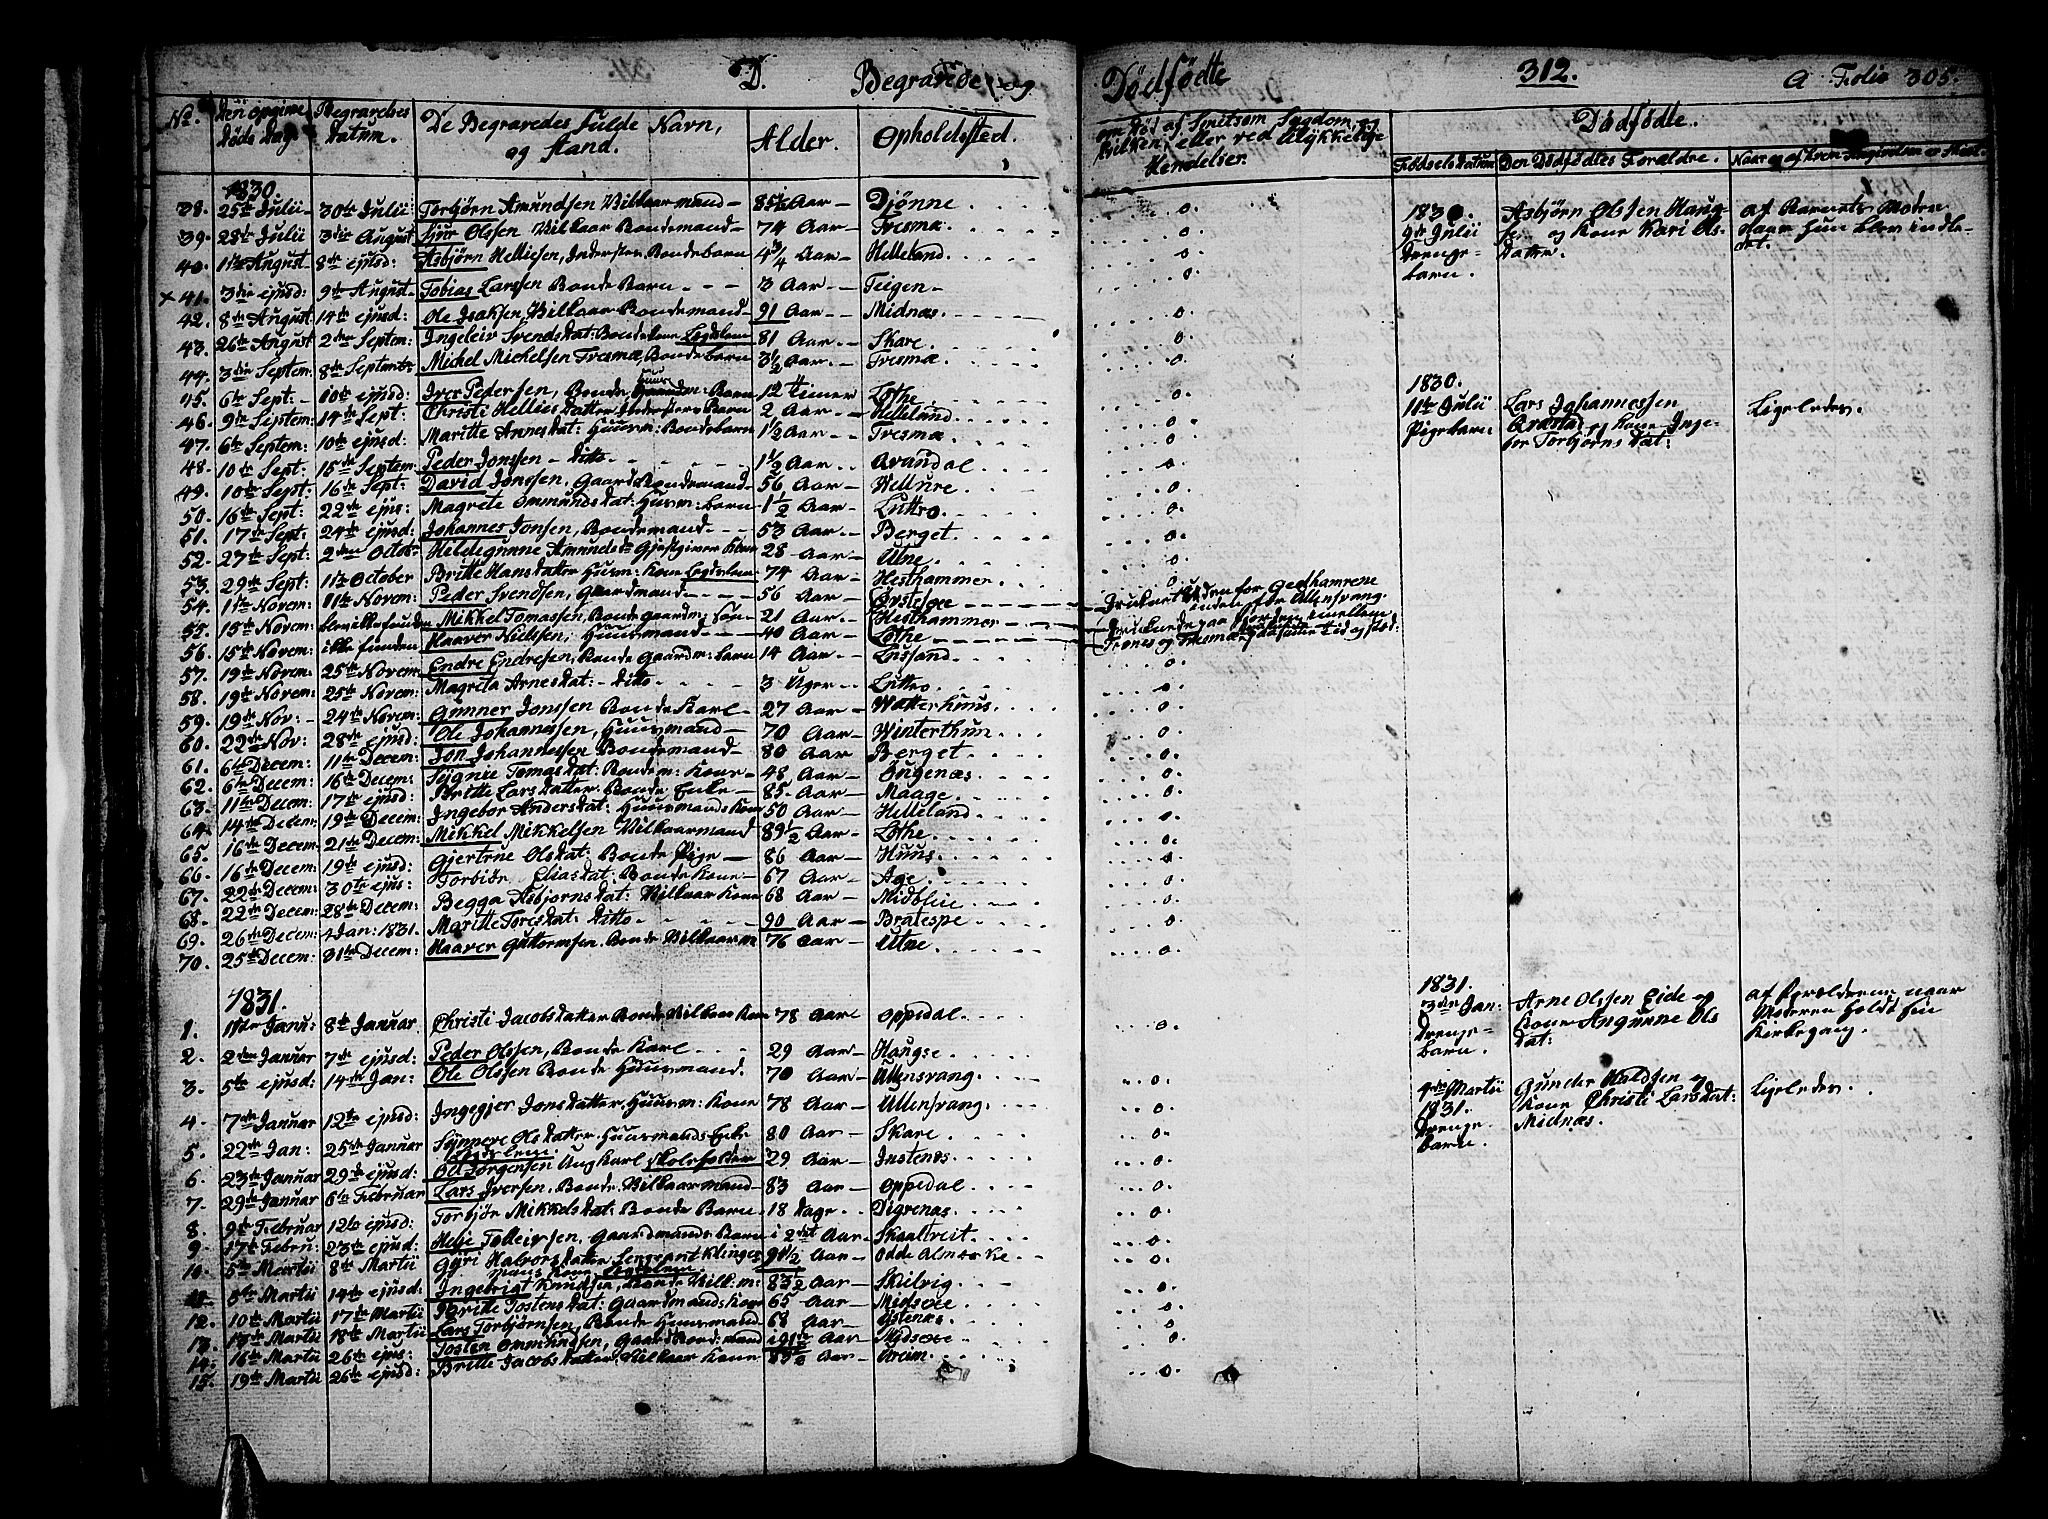 D. Begravede og Dødfødte 312. a Folio 305.
No. Den opgivne Døds Dag Begravelses datum. De Begravedes fulde Navn, og Stand. Alder. Opholdssted. Dødfødte.
Hendelser. Fødsels Datum Den Dødfødtes Forældre.
1830.
38. 25de Julii 30te Julii Torbjørn Amundsen Vilkaarmand 85½ Aar Djønne
39. 28de Julii 3die August Siur Olssen Vilkaar Bondemand 74 Aar Tresmæ
40. 1ste August 8de ejusd: Asbjørn Helliesen, Bondebarn 4¾ Aar Helleland
× 41. 3die ejusd: 9de August Tobias Larssen Bonde Barn 3 Aar Teigen
42. 8de August 14de ejusd: Ole Isaksen Vilkaar Bondemand 91 Aar Midnæs
43. 26de August 2den Septem: Ingeleiv Svendsdat: Legdslem 81 Aar Skare
44. 3die Septem: 8de Septemb: Mickel Mickelsen Tresmæ, Bondebarn 3½ Aar Tresmæ
45. 6te Sept: 10de ejusd: Iver Pedersen, Bonde Huusm: Barn 12 timer Lothe
46. 9de Septem 14de Sept: Christi Hellies Datter Barn 2 Aar Helleland
47. 6te Septem: 10de ejusd: Maritte Annesdat: Huusm: Bondebarn 1½ Aar Tresmæ
48. 10de Sept: 15de Septem Peder Jonssen ditto 1½ Aar Avandal
49. 10de Sept: 16de Sept: David Jonssen, Gaards Bondemand 56 Aar Velure
50. 16de Sept: 22de ejus: Magrete Ommundsdat: Huusm: barn 1½ Aar Luttro
51. 17de Sept: 24de ejusd: Johannes Jonsen, Bondemand 53 Aar Berget
52. 27de Sept: 2den Octob: Hildegunne Amundsd: Gjestgiver Kone 28 Aar Utne
53. 29de Sept: 11te October Britte Hansdatter Huusm: Kone Legdslem 74 Aar Hesthammer
54. 1ste Novem: 11te Novem: Peder Svendsen, Gaardmand 56 Aar
55. 15de Novem: blev ikke funden Mikkel Tomassen, Bonde gaardm: Søn 21 Aar Hesthammer
56. 15de Novem: ikke funden Haaver Nielssen, Huusmand 40 Aar Lothe
57. 19de Novem: 25de Novem: Endre Endresen, Bonde Gaardm: barn 14 Aar Lussand
58. 19de Novem: 25de Novem: Magreta Arnesdat: ditto 3 Uger Luttro
59. 19de Nov: 24de Novem: Gunner Jonssen Bonde Karl 27 Aar Watterhuus
60. 22de Nov: 28de ejusd: Ole Johannessen, Huusmand 70 Aar Winterthun
61. 6te Decem: 11te Decem: Jon Johannessen Bondemand 80 Aar Berget
62. 6te Decem: 16de Decem: Seignie Tomasdat: Bondem: Kone 48 Aar
63. 11te Decem: 17de ejusd: Britte Larsdatter Bonde Enke 85 Aar Maage
64. 14de Decem: 19de Decem: Ingebor Andersdat: Huusmands Kone 50 Aar Helleland
65. 16de Decem: 21de Decem: Mikkel Mikkelsen Vilkaarmand 89½ Aar Lothe
66. 16de Decem: 19de ejusd: Gjertrue Olsdat: Bonde Pige 86 Aar Huus
67. 22de Decem: 30te ejus: Torbiør Eliasdat: Bonde Kone 67 Aar Age
68. 22de Decem: 28de Decem: Begga Asbjørnsdat: Vilkaar Kone 68 Aar
69. 26de Decem: 4 Jan: 1831. Maritte Toresdat: ditto 90 Aar Bratespe
70. 25de Decem: 31te Decem: Haaver Guttormsen Bonde Vilkaarm 76 Aar Utne
1831.
1. 1ste Janu: 8de Januar Christi Jacobsdatter Bonde 78 Aar Oppedal
2. 2den Januar 7de ejusd: Peder Olssen, Bonde Karl 29 Aar Haugse
3. 5te ejusd: 14de Jan: Ole Olssen Bonde Huusmand. 70 Aar Ullensvang
4. 7de Januar 12te ejusd: Ingegjer Jonsdatter Huusm: Kone 78 Aar Ullensvang
5. 22de Jan: 25de Januar Synneve Olsdatter Huusmands Enke Legdslem 80 Aar Skare
6. 23de Januar 29de ejusd: Ole Jørgensen Ung Karl Skoleholder 29 Aar Instenæs
7. 29de Januar 6te Februar Lars Iversen, Bonde Vilkaarmand 83 Aar Oppedal
8. 9de Februar 12te ejusd: Torbjør Mikkelsdat: Bonde Barn 18 dage Digrenæs
9. 17de Febru: 23de ejusd: Helje Tolleivsen, Gaardmands Barn i 2det Aar Skaaltveit
10. 5te Martii 8de Martii Gyri Halvorsdatter Sergeant Klinge Kone Legdslem 91½ Aar Odde
11. 8de Martii 14de ejusd: Ingebrigt Knudsen, Bonde Vilk: m: 83½ Aar Skilvig
12. 10de Martii 17de Martii Britte Tostensdat: Gaardmands Kone 65 Aar Midsøe
13. 13de Martii 18de Martii Lars Torbjørnsen, Bonde Huusmand 68 Aar Ystenæs
14. 16de Martii 26de ejus: Tosten Ommundsen, Gaard Bond: mand Aar Mydsøe
15. 19de Martii 26de ejusd: Britte Jacobsdatter, Vilkaar Kone 83½ Aar Areim
Druknet uden for Ullensvang.
1830.
9de Julii Drengebarn. Asbjørn Olssen Haugse og Kone Kari Olsdatter. af Barnets Moder
1830.
11te Julii Pigebarn. Lars Johannessen og Kone Ingebor Torbjørnsdat: Ligeledes.
1831.
3die Jan: Drengebarn. Arne Olssen Eide og Kone Angunne Olsdat: af Forældrene naar Moderen holdt sin Kirkegang.
4de Martii 1831. Drengebarn. Gunder Kone Christi Larsdat: Midnæs. Ligeledes.